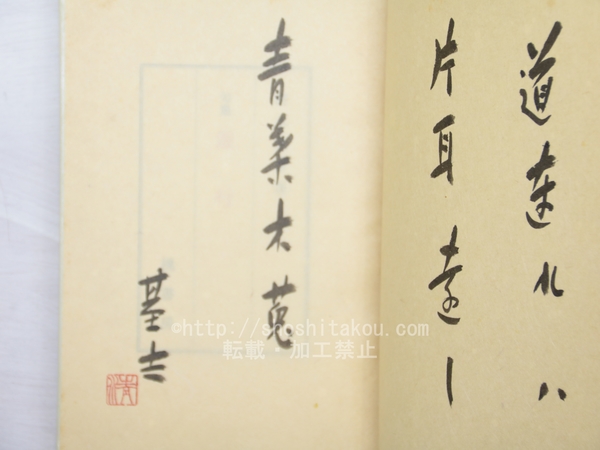 道連れハ
片耳遠し
青葉木菟
基吉
©http://shoshitakou.com/
転載・加工禁止